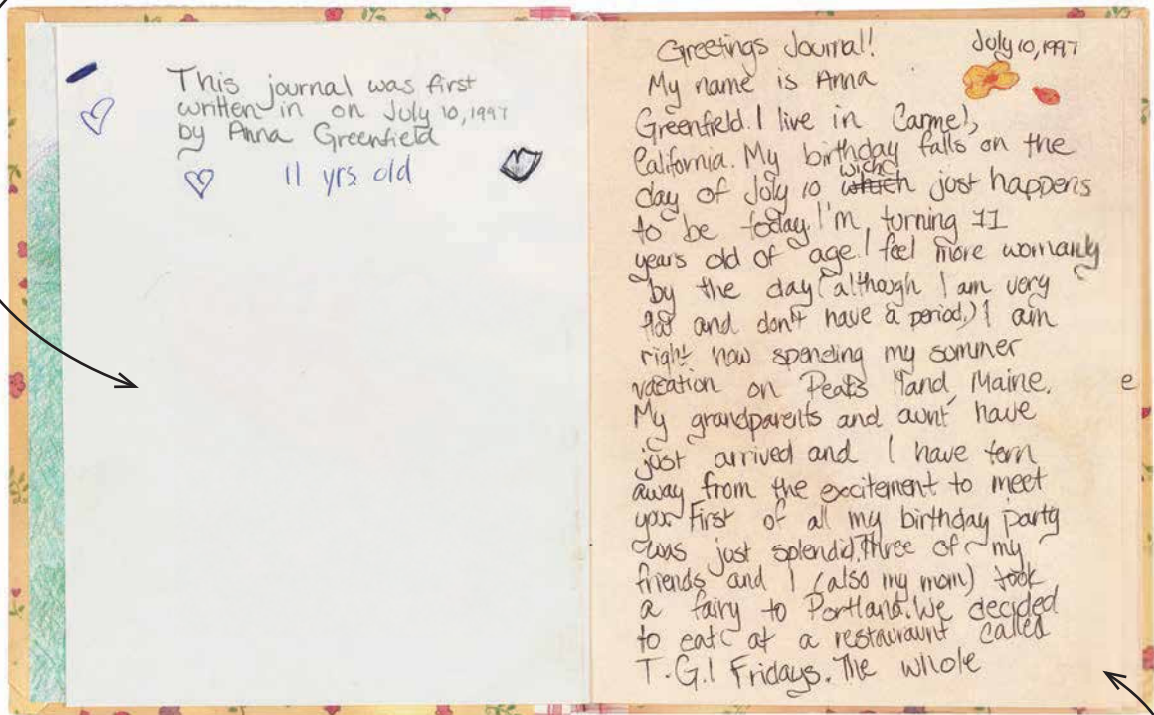 This journal was first
written in on July 10, 1997
by Anna Greenfield
11 yrs old
Greetings Journal! July 10, 1997
My name is Anna
Greenfield. I live in Carmel,
California. My birthday falls on the
day of July 10 wich just happens
to be today. I'm turning 11
years old of age. I feel more womanly
by the day (although I am very
flat and don't have a period,) I am
right now spending my summer
vacation on Peaks Iland, Maine.
My grandparents and aunt have
just arrived and I have torn
away from the excitement to meet
you. First of all my birthday party
was just splendid. Three of my
friends and I (also my mom) took
a fairy to Portland. We decided
to eat at a restauraunt called
T.G.I Fridays. The whole
e